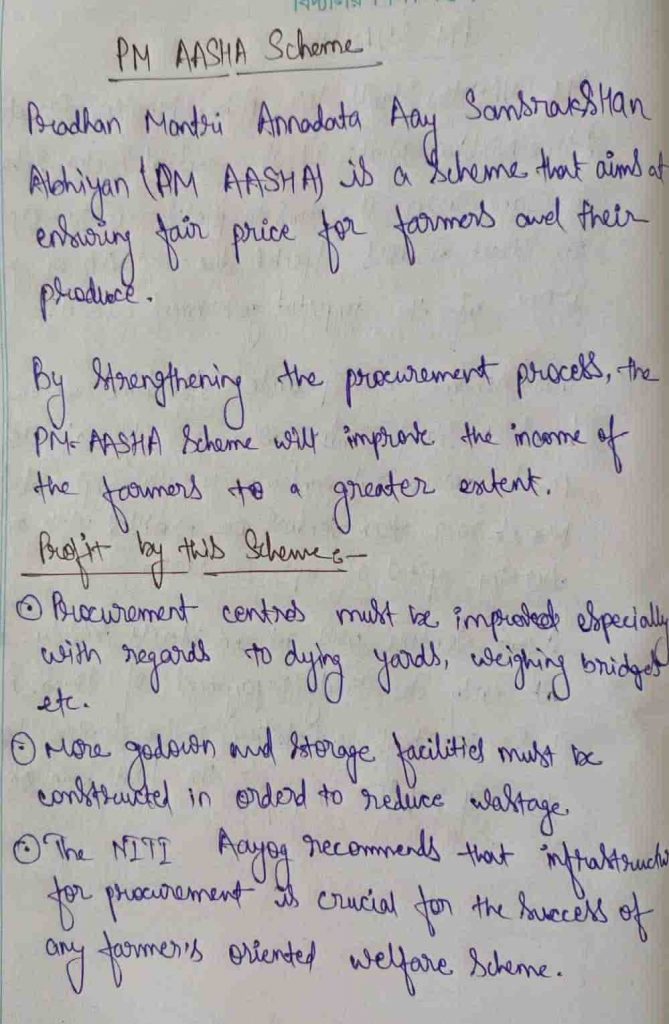 PM AASHA Scheme
Pradhan Mantri Annadata Aay SansrakSHan
Abhiyan (PM AASHA) is a Scheme that aims at
ensuring fair price for farmers and their
produce.
By Strengthening the procurement process, the
PM-AASHA Scheme will improve the income of
the farmers to a greater extent.
Profit by this Scheme :-
⊙ Procurement centres must be improved especially
with regards to dying yards, weighing bridges
etc.
⊙ More godown and Storage facilities must be
constructed in orderd to reduce wastage.
⊙ The NITI Aayog recommends that
for procurement is crucial for the Success of
any farmer's oriented welfare Scheme.